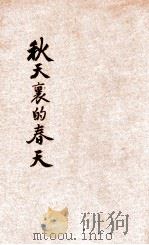 秋天裏的春天
mtoou.info